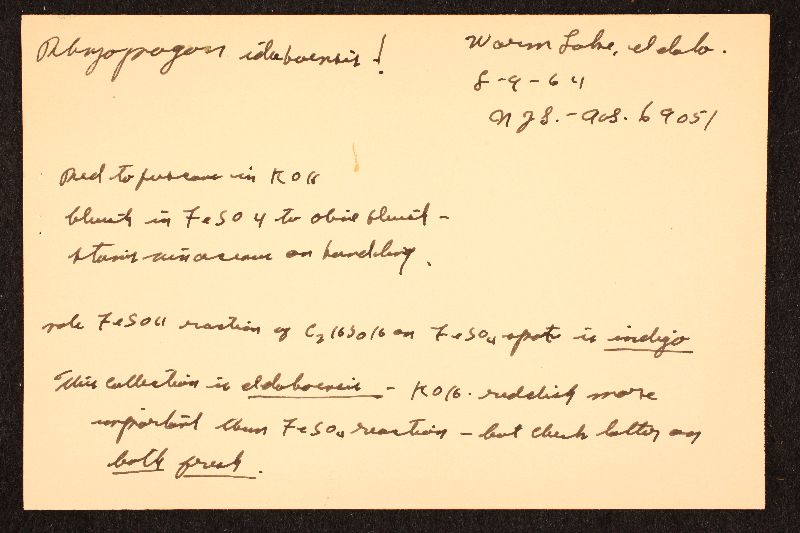 Rhizopogon idahoensis!
Warm Lake, Idaho.
8-9-64
NJS.-AHS. 69051
Red to fuscous in KOH
bluish in FeSO4 to olive bluish -
stains vinaceous on handling.
note FeSO4 reaction of C2H5OH on FeSO4 spots is indigo
This collection is idahoensis - KOH. reddish more
important than FeSO4 reaction - but check latter on
both fresh.